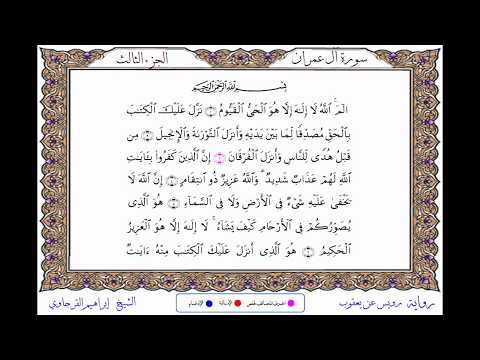 سورة آل عمران
الجزء الثالث
بِسْمِ اللَّهِ الرَّحْمَٰنِ الرَّحِيمِ
الٓمٓ ۝ اللَّهُ لَا إِلَٰهَ إِلَّا هُوَ الْحَيُّ الْقَيُّومُ ۝ نَزَّلَ عَلَيْكَ الْكِتَٰبَ
بِالْحَقِّ مُصَدِّقًا لِمَا بَيْنَ يَدَيْهِ وَأَنزَلَ التَّوْرَىٰةَ وَالْإِنجِيلَ ۝ مِن
قَبْلُ هُدًى لِلنَّاسِ وَأَنزَلَ الْفُرْقَانَ ۝ إِنَّ الَّذِينَ كَفَرُوا بِـَٔايَٰتِ
اللَّهِ لَهُمْ عَذَابٌ شَدِيدٌ ۗ وَاللَّهُ عَزِيزٌ ذُو انتِقَامٍ ۝ إِنَّ اللَّهَ لَا
يَخْفَىٰ عَلَيْهِ شَيْءٌ فِي الْأَرْضِ وَلَا فِي السَّمَاءِ ۝ هُوَ الَّذِي
يُصَوِّرُكُمْ فِي الْأَرْحَامِ كَيْفَ يَشَاءُ ۚ لَا إِلَٰهَ إِلَّا هُوَ الْعَزِيزُ
الْحَكِيمُ ۝ هُوَ الَّذِي أَنزَلَ عَلَيْكَ الْكِتَٰبَ مِنْهُ ءَايَٰتٌ
رواية رويس عن يعقوب
الإمالة
الإدغام
الشيخ إبراهيم الفرجاوي